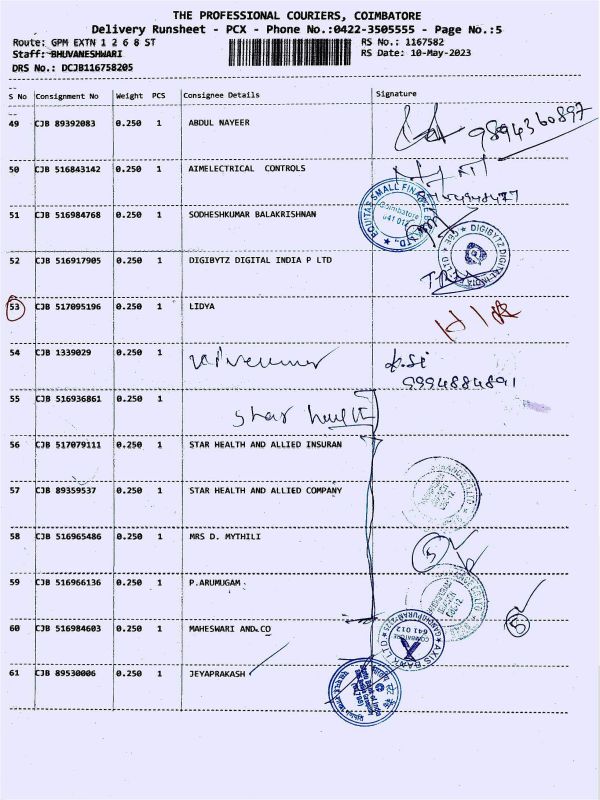 THE PROFESSIONAL COURIERS, COIMBATORE
Delivery Runsheet - PCX - Phone No.:0422-3505555 - Page No.:5
Route: GPM EXTN 1 2 6 8 ST RS No.: 1167582
Staff: BHUVANESHWARI RS Date: 10-May-2023
DRS No.: DCJB116758205
S No Consignment No Weight PCS Consignee Details Signature
49 CJB 89392083 0.250 1 ABDUL NAYEER 9894360897
50 CJB 516843142 0.250 1 AIMELECTRICAL CONTROLS
51 CJB 516984768 0.250 1 SODHESHKUMAR BALAKRISHNAN
EQUITAS SMALL FINANCE BANK LTD.
Coimbatore
641 012
52 CJB 516917905 0.250 1 DIGIBYTZ DIGITAL INDIA P LTD
DIGIBYTZ DIGITAL INDIA LTD CBE
53 CJB 517095196 0.250 1 LIDYA
54 CJB 1339029 0.250 1
9994884891
55 CJB 516936861 0.250 1 Star health
56 CJB 517079111 0.250 1 STAR HEALTH AND ALLIED INSURAN
57 CJB 89359537 0.250 1 STAR HEALTH AND ALLIED COMPANY
58 CJB 516965486 0.250 1 MRS D. MYTHILI
59 CJB 516966136 0.250 1 P.ARUMUGAM
60 CJB 516984603 0.250 1 MAHESWARI AND CO
AXIS BANK LTD
GANDHIPURAM
COIMBATORE
641 012
61 CJB 89530006 0.250 1 JEYAPRAKASH